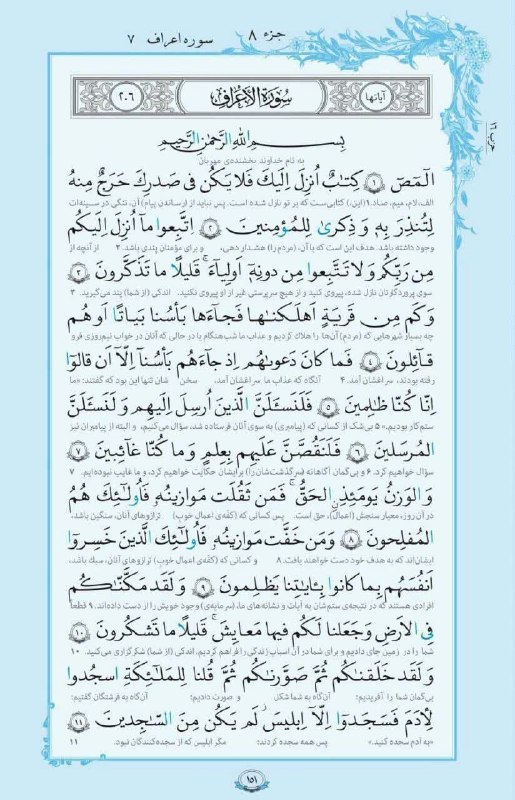 جزء ۸ سوره اعراف ۷
آیاتها سُورَةُ الاَعْرَافِ ۲۰۶
حزب ۱۶
بِسْمِ اللهِ الرَّحْمٰنِ الرَّحیمِ
به نام خداوند بخشنده‌ی مهربان
الٓمٓصٓ ۱ كِتٰبٌ اُنزِلَ اِلَیكَ فَلا یَكُن فی صَدرِكَ حَرَجٌ مِنهُ
الف، لام، میم، صاد. ۱ (این) کتابی‌ست که بر تو نازل شده است. پس نباید از (رساندن پیام) آن، تنگی در سینه‌ات
لِتُنذِرَ بِهٖ وَ ذِكریٰ لِلمُؤمِنینَ ۲ اِتَّبِعوا مآ اُنزِلَ اِلَیكُم
وجود داشته باشد. هدف این است که با آن، (مردم را) هشدار دهی، و برای مؤمنان پندی باشد. ۲ از آنچه از
مِن رَبِّكُم وَ لا تَتَّبِعوا مِن دونِهٖٓ اَولِیآءَ ۚ قَلیلًا ما تَذَكَّرونَ ۳
سوی پروردگارتان نازل شده، پیروی کنید و از هیچ سرپرستی غیر از او پیروی نکنید. اندکی (از شما) پند می‌گیرید. ۳
وَ كَم مِن قَریَةٍ اَهلَكنٰها فَجآءَها بَأسُنا بَیاتًا اَو هُم
چه بسیار شهرهایی که (مردم) آن‌ها را هلاک کردیم و عذاب ما شب‌هنگام یا در حالی که آنان در خواب نیم‌روزی فرو
قآئِلونَ ۴ فَما كانَ دَعوىٰهُم اِذ جآءَهُم بَأسُنآ اِلّآ اَن قالوٓا
رفته بودند، سراغشان آمد. ۴ آنگاه که عذاب ما سراغشان آمد، سخن‌شان تنها این بود که گفتند: «ما
اِنّا كُنّا ظٰلِمینَ ۵ فَلَنَسئَلَنَّ الَّذینَ اُرسِلَ اِلَیهِم وَ لَنَسئَلَنَّ
ستم‌کار بودیم.» ۵ بی‌شک از کسانی که (پیامبری) به سوی آنان فرستاده شد، سؤال می‌کنیم، و البته از پیامبران نیز
المُرسَلینَ ۶ فَلَنَقُصَّنَّ عَلَیهِم بِعِلمٍ وَ ما كُنّا غآئِبینَ ۷
سؤال خواهیم کرد. ۶ و بی‌گمان آگاهانه (سرگذشت‌شان را) برایشان حکایت خواهیم کرد، و ما غایب نبوده‌ایم. ۷
وَ الوَزنُ یَومَئِذٍ الحَقُّ ۚ فَمَن ثَقُلَت مَوازینُهٗ فَاُولٰٓئِكَ هُمُ
در آن روز، معیار سنجش (اعمال)، حق است. پس کسانی که (کفّه‌ی اعمال خوب) ترازوهای آنان، سنگین باشد،
المُفلِحونَ ۸ وَ مَن خَفَّت مَوازینُهٗ فَاُولٰٓئِكَ الَّذینَ خَسِروٓا
ایشان‌اند که به هدف خود دست خواهند یافت. ۸ و کسانی که (کفّه‌ی اعمال خوب) ترازوهای آنان، سبک باشد،
اَنفُسَهُم بِما كانوا بِـٔایٰتِنا یَظلِمونَ ۹ وَ لَقَد مَكَّنّٰكُم
افرادی هستند که در نتیجه‌ی ستم‌شان به آیات و نشانه‌های ما، (سرمایه‌ی) وجود خویش را از دست داده‌اند. ۹ قطعاً
فِی الاَرضِ وَ جَعَلنا لَكُم فیها مَعایِشَ ۗ قَلیلًا ما تَشكُرونَ ۱۰
شما را در زمین جای دادیم و برای شما در آن اسباب زندگی را فراهم کردیم. اندکی (از شما) شکرگزاری می‌کنید. ۱۰
وَ لَقَد خَلَقنٰكُم ثُمَّ صَوَّرنٰكُم ثُمَّ قُلنا لِلمَلٰٓئِكَةِ اسجُدوا
بی‌گمان شما را آفریدیم؛ آن‌گاه به شما شکل و صورت دادیم؛ آن‌گاه به فرشتگان گفتیم:
لِاٰدَمَ فَسَجَدوٓا اِلّآ اِبلیسَ لَم یَكُن مِنَ السّٰجِدینَ ۱۱
«به آدم سجده کنید.» پس همه سجده کردند؛ مگر ابلیس که از سجده‌کنندگان نبود. ۱۱
۱۵۱